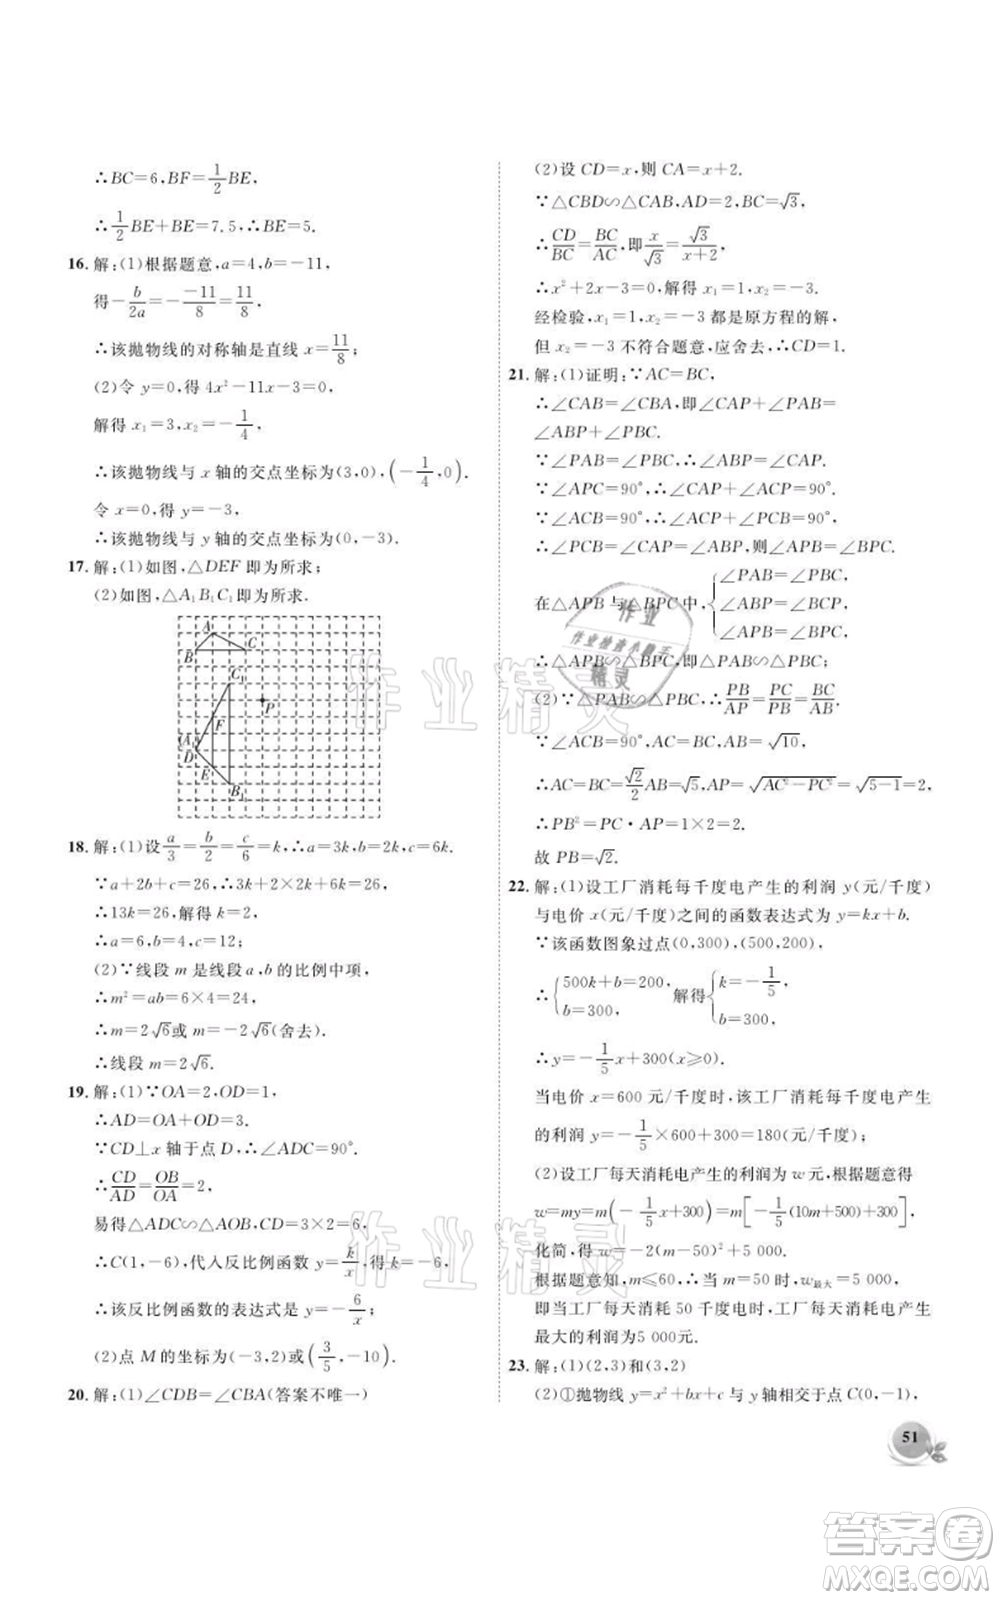 ∴BC=6,BF=1/2 BE,
∴1/2 BE+BE=7.5,∴BE=5.
16.解:(1)根据题意,a=4,b=-11,
得-b/2a=-(-11)/8=11/8,
∴该抛物线的对称轴是直线 x=11/8;
(2)令 y=0,得 4x²-11x-3=0,
解得 x₁=3,x₂=-1/4,
∴该抛物线与 x 轴的交点坐标为(3,0),(-1/4,0).
令 x=0,得 y=-3,
∴该抛物线与 y 轴的交点坐标为(0,-3).
17.解:(1)如图,△DEF 即为所求;
(2)如图,△A₁B₁C₁即为所求.
A
B
C
C₁
P
F
(A₁)
D
E
B₁
18.解:(1)设a/3=b/2=c/6=k,∴a=3k,b=2k,c=6k.
∵a+2b+c=26,∴3k+2×2k+6k=26,
∴13k=26,解得 k=2,
∴a=6,b=4,c=12;
(2)∵线段 m 是线段 a,b 的比例中项,
∴m²=ab=6×4=24,
∴m=2√6或 m=-2√6(舍去).
∴线段 m=2√6.
19.解:(1)∵OA=2,OD=1,
∴AD=OA+OD=3.
∵CD⊥x 轴于点 D,∴∠ADC=90°.
∴CD/AD=OB/OA=2,
易得△ADC∽△AOB,CD=3×2=6,
∴C(1,-6),代入反比例函数 y=k/x,得 k=-6,
∴该反比例函数的表达式是 y=-6/x;
(2)点 M 的坐标为(-3,2)或(3/5,-10).
20.解:(1)∠CDB=∠CBA(答案不唯一)
(2)设 CD=x,则 CA=x+2.
∵△CBD∽△CAB,AD=2,BC=√3,
∴CD/BC=BC/AC,即x/√3=√3/(x+2),
∴x²+2x-3=0,解得 x₁=1,x₂=-3.
经检验,x₁=1,x₂=-3 都是原方程的解,
但 x₂=-3 不符合题意,应舍去,∴CD=1.
21.解:(1)证明:∵AC=BC,
∴∠CAB=∠CBA,即∠CAP+∠PAB=
∠ABP+∠PBC.
∵∠PAB=∠PBC,∴∠ABP=∠CAP.
∵∠APC=90°,∴∠CAP+∠ACP=90°.
∵∠ACB=90°,∴∠ACP+∠PCB=90°,
∴∠PCB=∠CAP=∠ABP,则∠APB=∠BPC.
在△APB 与△BPC中,{∠PAB=∠PBC, ∠ABP=∠BCP, ∠APB=∠BPC,
∴△APB∽△BPC,即△PAB∽△PBC;
(2)∵△PAB∽△PBC,∴PB/AP=PC/PB=BC/AB.
∵∠ACB=90°,AC=BC,AB=√10,
∴AC=BC=√2/2 AB=√5,AP=√(AC²-PC²)=√(5-1)=2,
∴PB²=PC·AP=1×2=2.
故 PB=√2.
22.解:(1)设工厂消耗每千度电产生的利润 y(元/千度)
与电价 x(元/千度)之间的函数表达式为 y=kx+b.
∵该函数图象过点(0,300),(500,200),
∴{500k+b=200, b=300, 解得{k=-1/5, b=300,
∴y=-1/5 x+300(x≥0).
当电价 x=600 元/千度时,该工厂消耗每千度电产生
的利润 y=-1/5×600+300=180(元/千度);
(2)设工厂每天消耗电产生的利润为 w 元,根据题意得
w=my=m(-1/5 x+300)=m[-1/5(10m+500)+300]
化简,得 w=-2(m-50)²+5 000.
根据题意知,m≤60,∴当 m=50 时,w最大=5 000,
即当工厂每天消耗 50 千度电时,工厂每天消耗电产生
最大的利润为5 000元.
23.解:(1)(2,3)和(3,2)
(2)①抛物线 y=ax²+bx+c 与 y 轴相交于点 C(0,-1),
51
作业精灵
作业精灵
作业
作业检查小助手
精灵
答案卷
MXQE.COM